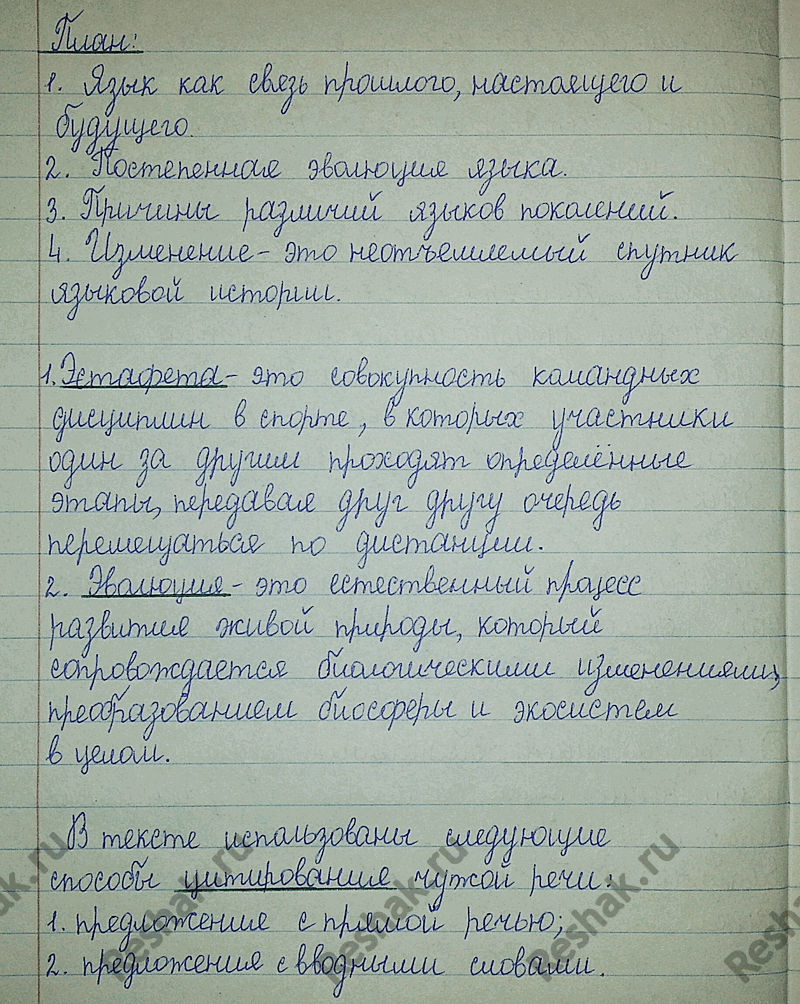 План:
1. Язык как связь прошлого, настоящего и
будущего.
2. Постепенная эволюция языка.
3. Причины различий языков поколений.
4. Изменение - это неотъемлемый спутник
языковой истории.
1. Эстафета - это совокупность командных
дисциплин в спорте, в которых участники
один за другим проходят определённые
этапы, передавая друг другу очередь
перемещаться по дистанции.
2. Эволюция - это естественный процесс
развития живой природы, который
сопровождается биологическими изменениями,
преобразованием биосферы и экосистем
в целом.
В тексте использованы следующие
способы цитирования чужой речи:
1. предложения с прямой речью;
2. предложения с вводными словами.
ak.ru
Reshak.ru
Reshak.ru
Reshak.ru
Resha